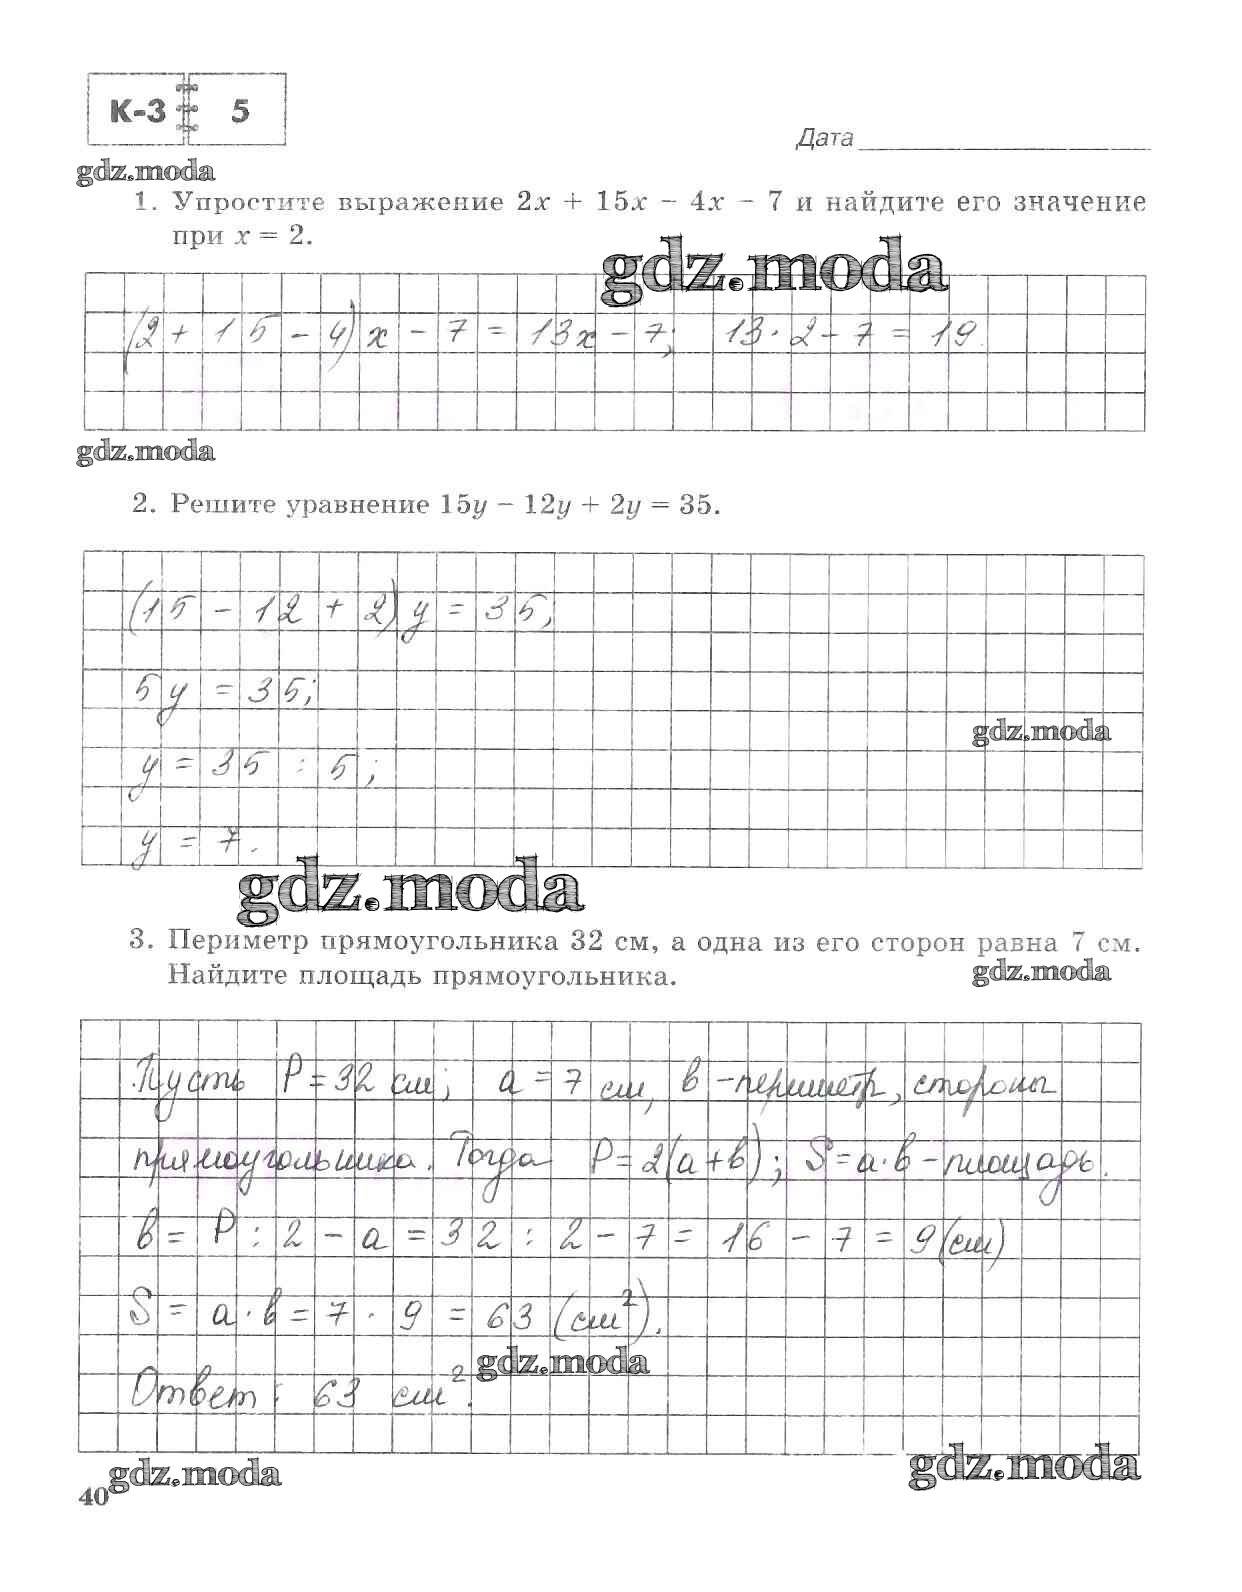 К-3 5
Дата
gdz.moda
1. Упростите выражение 2x + 15x − 4x − 7 и найдите его значение
при x = 2.
gdz.moda
(2 + 15 − 4) x − 7 = 13x − 7; 13 · 2 − 7 = 19.
gdz.moda
2. Решите уравнение 15y − 12y + 2y = 35.
(15 − 12 + 2) y = 35;
5y = 35;
gdz.moda
y = 35 : 5;
y = 7.
gdz.moda
3. Периметр прямоугольника 32 см, а одна из его сторон равна 7 см.
Найдите площадь прямоугольника.
gdz.moda
Пусть P = 32 см; a = 7 см, b – периметр, стороны
прямоугольника. Тогда P = 2(a + b); S = a · b – площадь.
b = P : 2 − a = 32 : 2 − 7 = 16 − 7 = 9 (см)
S = a · b = 7 · 9 = 63 (см²).
gdz.moda
Ответ: 63 см².
gdz.moda
gdz.moda
40